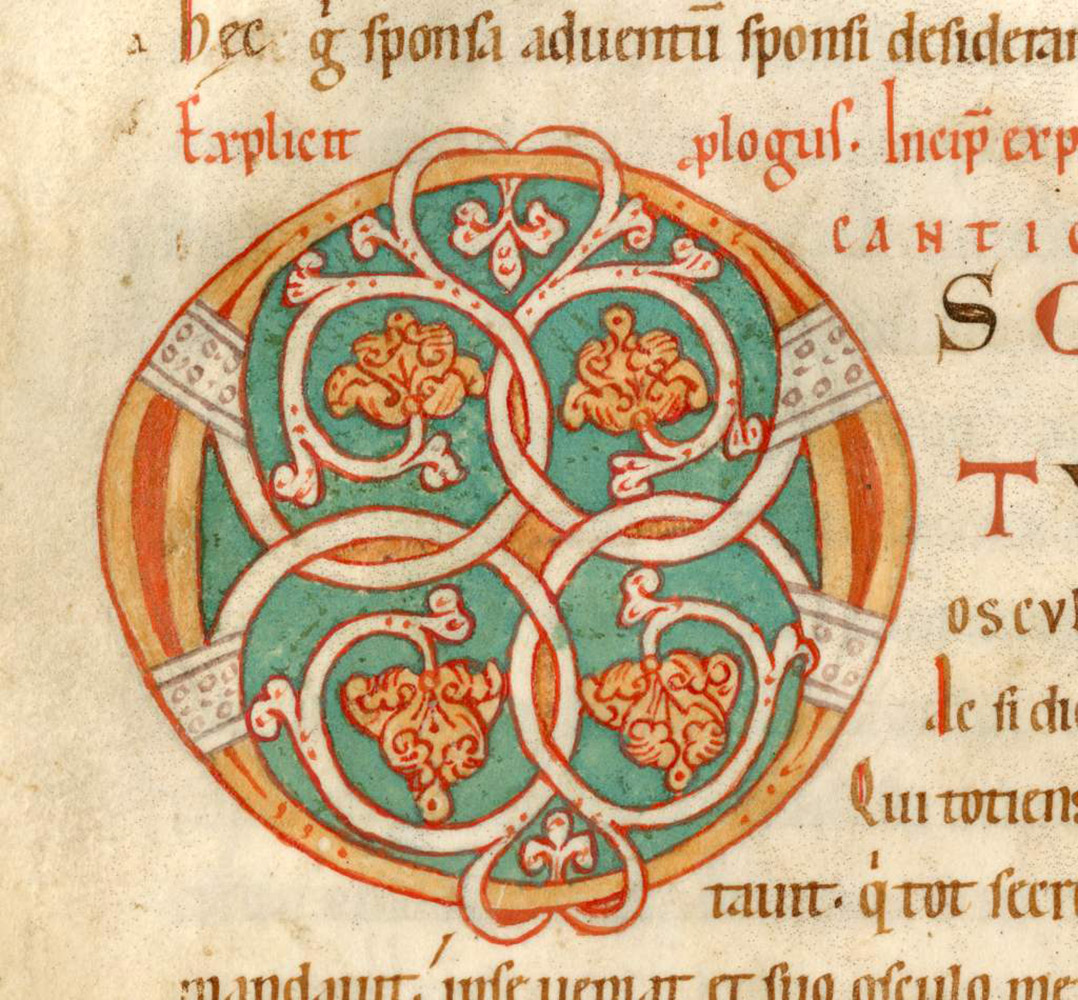 hec g̉ sponsa aduentū sponsi desidera
Explicit plogus. Incip̄ exp
CANTIC
O SC
TV
OSCVL
Ac si di
Qui totiens
tauit. q̇ tot secre
mandauit, ipse ueniat et suo osculo me